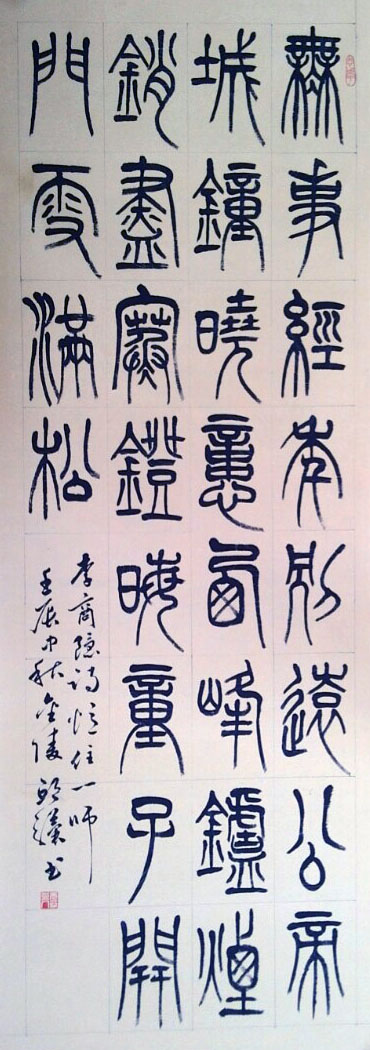 無事經年別遠公帝
城鐘曉憶西峰鑪煙
銷盡寒鐙晦童子開
門雪滿松
李商隐詩忆住一師
壬辰中秋金陵书